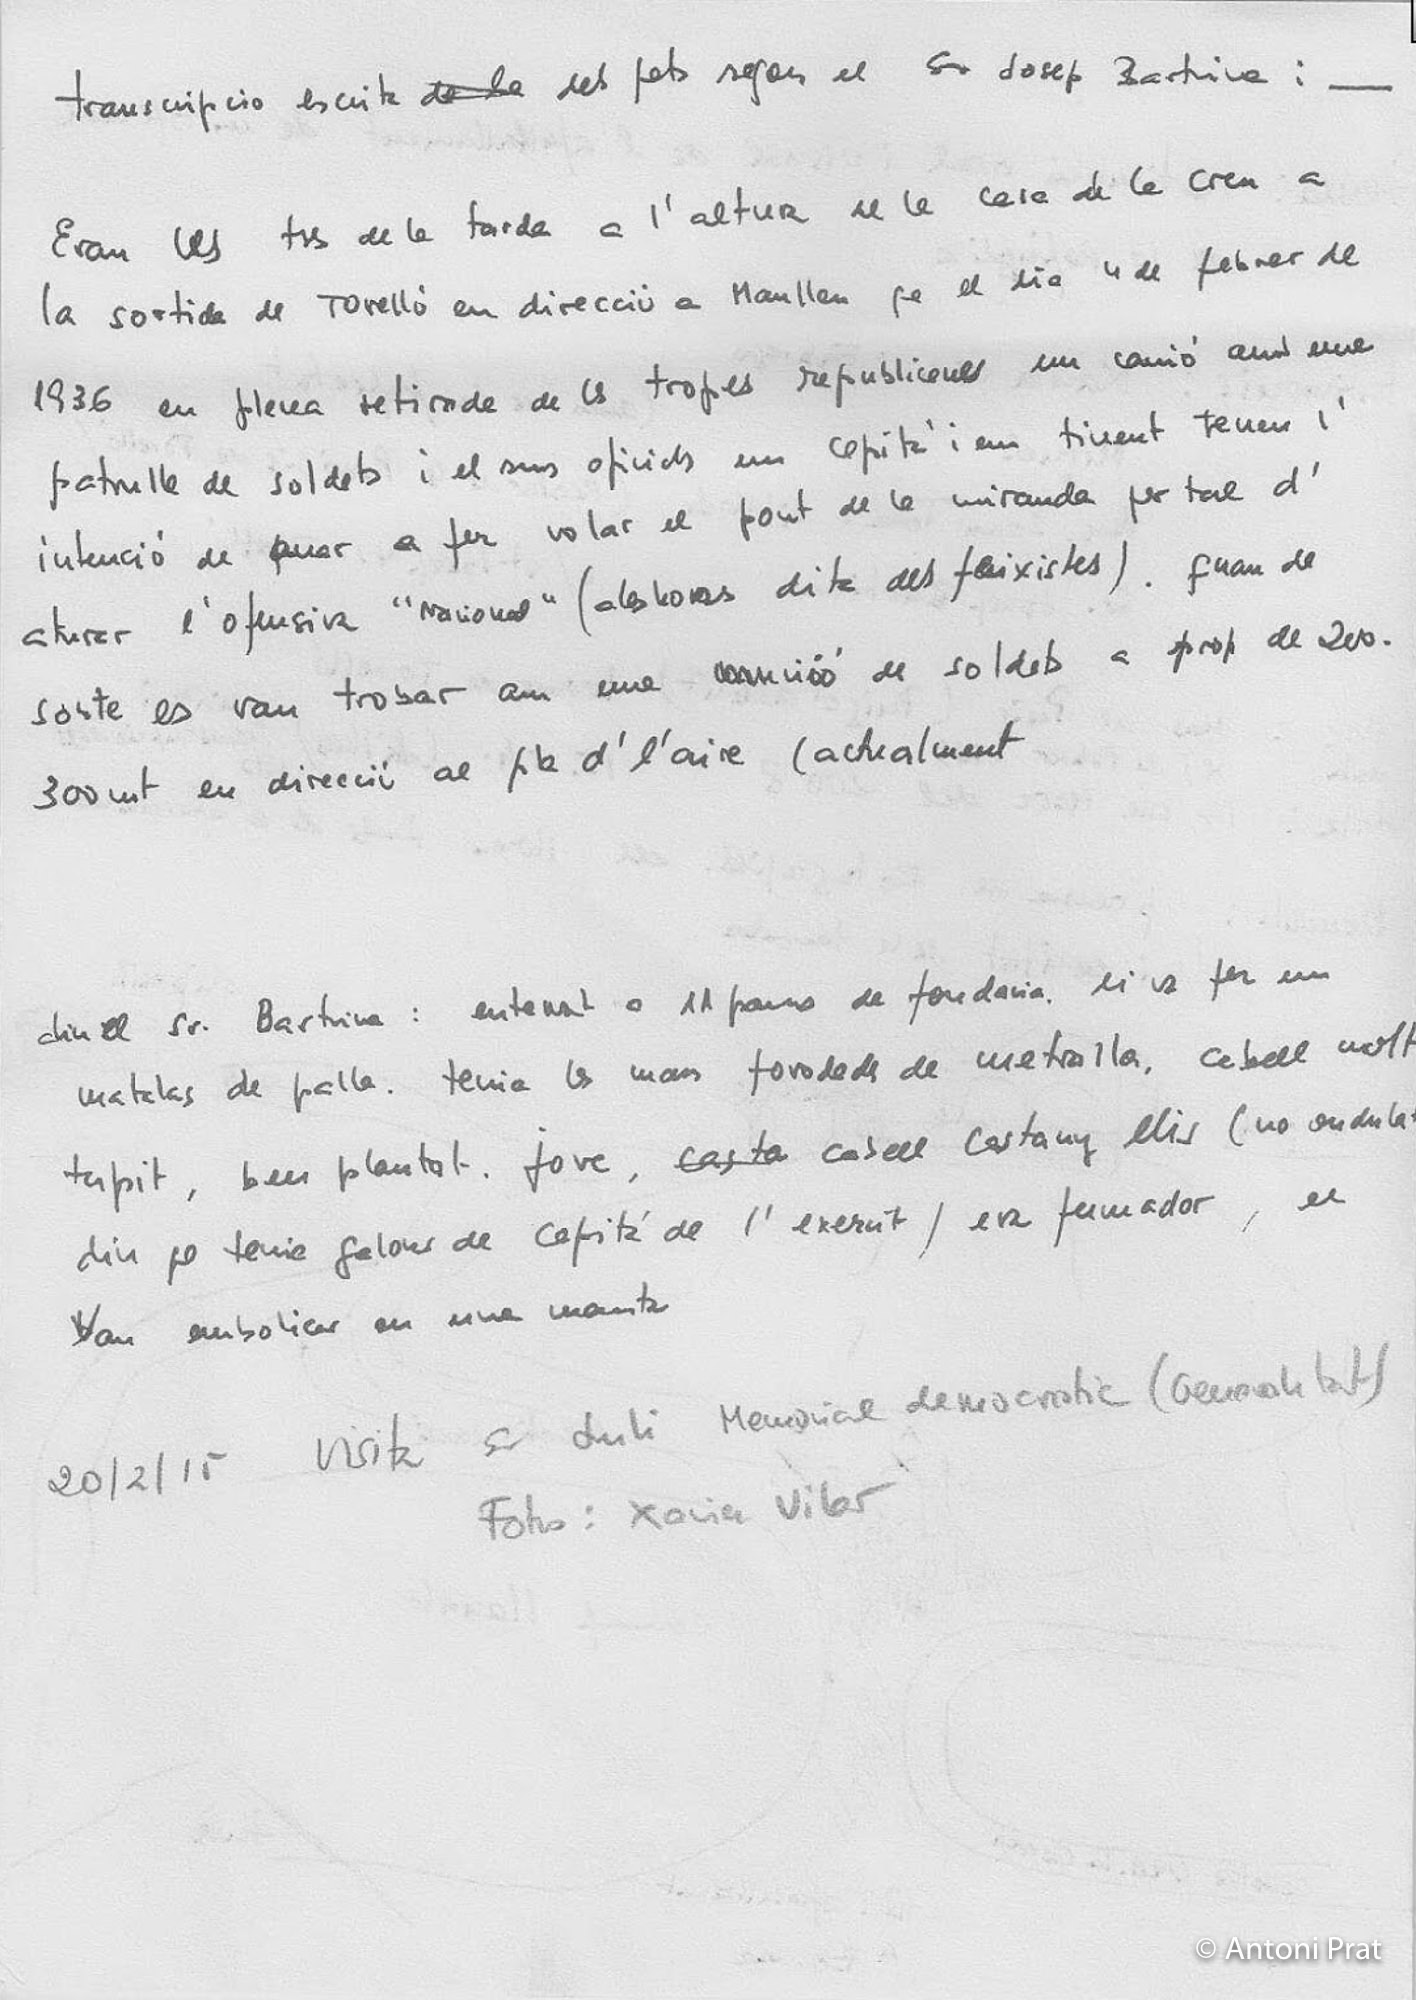 transcripcio escrita de la dels fets segons el Sr Josep Bartrina : __
Eran les tres de la tarda a l'altura de la casa de la Creu a
la sortida de Torelló en direcció a Manlleu qe el dia 4 de febrer de
1936 en plena retirada de les tropes republicanes un camió amb una
patrulla de soldats i el seus oficials un capità i un tinent tenen l'
intenció de anar a fer volar el pont de la miranda per tal d'
aturar l'ofensiva "Nacional" (aleshores dita dels feixistes). quan de
sobte es van trobar am una de soldats a prop de 200.
300 mt en direcció al pla d'l'aire (actualment
diu el Sr. Bartrina : enterrat a 11 pams de fondaria. li va fer un
matalas de palla. tenia les mans foradades de metralla, cabell molt
tupit, ben plantat. jove, casta cabell castany llis (no ondulat
diu qe tenia galons de capità de l'exercit / era fumador, el
Van embolicar en una manta
20/2/15 Visita Sr Juli Memorial democratic (Generalitat)
Fotos : Xavier Vilar
© Antoni Prat